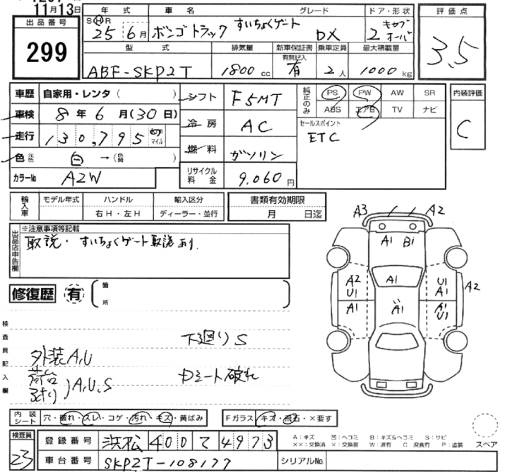 11月13日
出品番号
299
年式 車名 グレード ドア・形状
S H 25年6月 ボンゴトラック すいちょくゲート DX 2 キャブオーバ
型式 排気量 新車保証書 有無記入 乗車定員 最大積載量
ABF-SKP2T 1800cc 有 2人 1000kg
評価点
3.5
車歴 自家用・レンタ( )
車検 8年6月(30日)
走行 130,795 キロ マイル
色 元色 白→(色替)
カラーNo A2W
シフト F5MT
冷房 AC
燃料 ガソリン
リサイクル料金 9,060円
純正のみ PS PW AW SR
ABS エアB TV ナビ
セールスポイント
ETC
内装評価
C
輸入車 モデル年式 ハンドル 輸入区分
右H・左H ディーラー・並行
書類有効期限
月 日迄
出品店申告欄
※注意事項等記載
取説・すいちょくゲート取説あり。
修復歴 有 箇所
検査員記入欄
下廻りS
外装A,U
荷台 A,U,S
Dシート破れ
A3 A2
A1 B1
A2 U1 A1 A1 U1 A1 A2
A1
内装シート 穴・破れ・スレ・コゲ・汚れ・キズ・黄ばみ
Fガラス キズ・飛石・×要す
検査員 23
登録番号 浜松400て4973
車台番号 SKP2T-108177
シリアルNo
A:キズ U:ヘコミ B:キズ&ヘコミ S:サビ
スペア